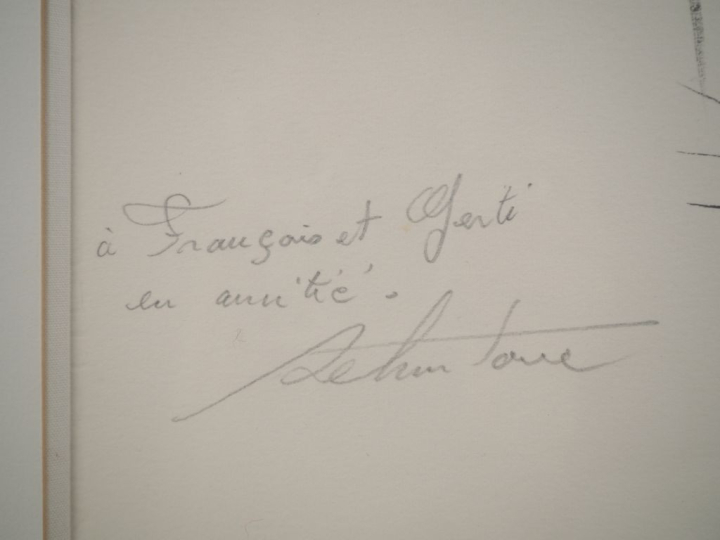 à François et Gerti
en amitié.